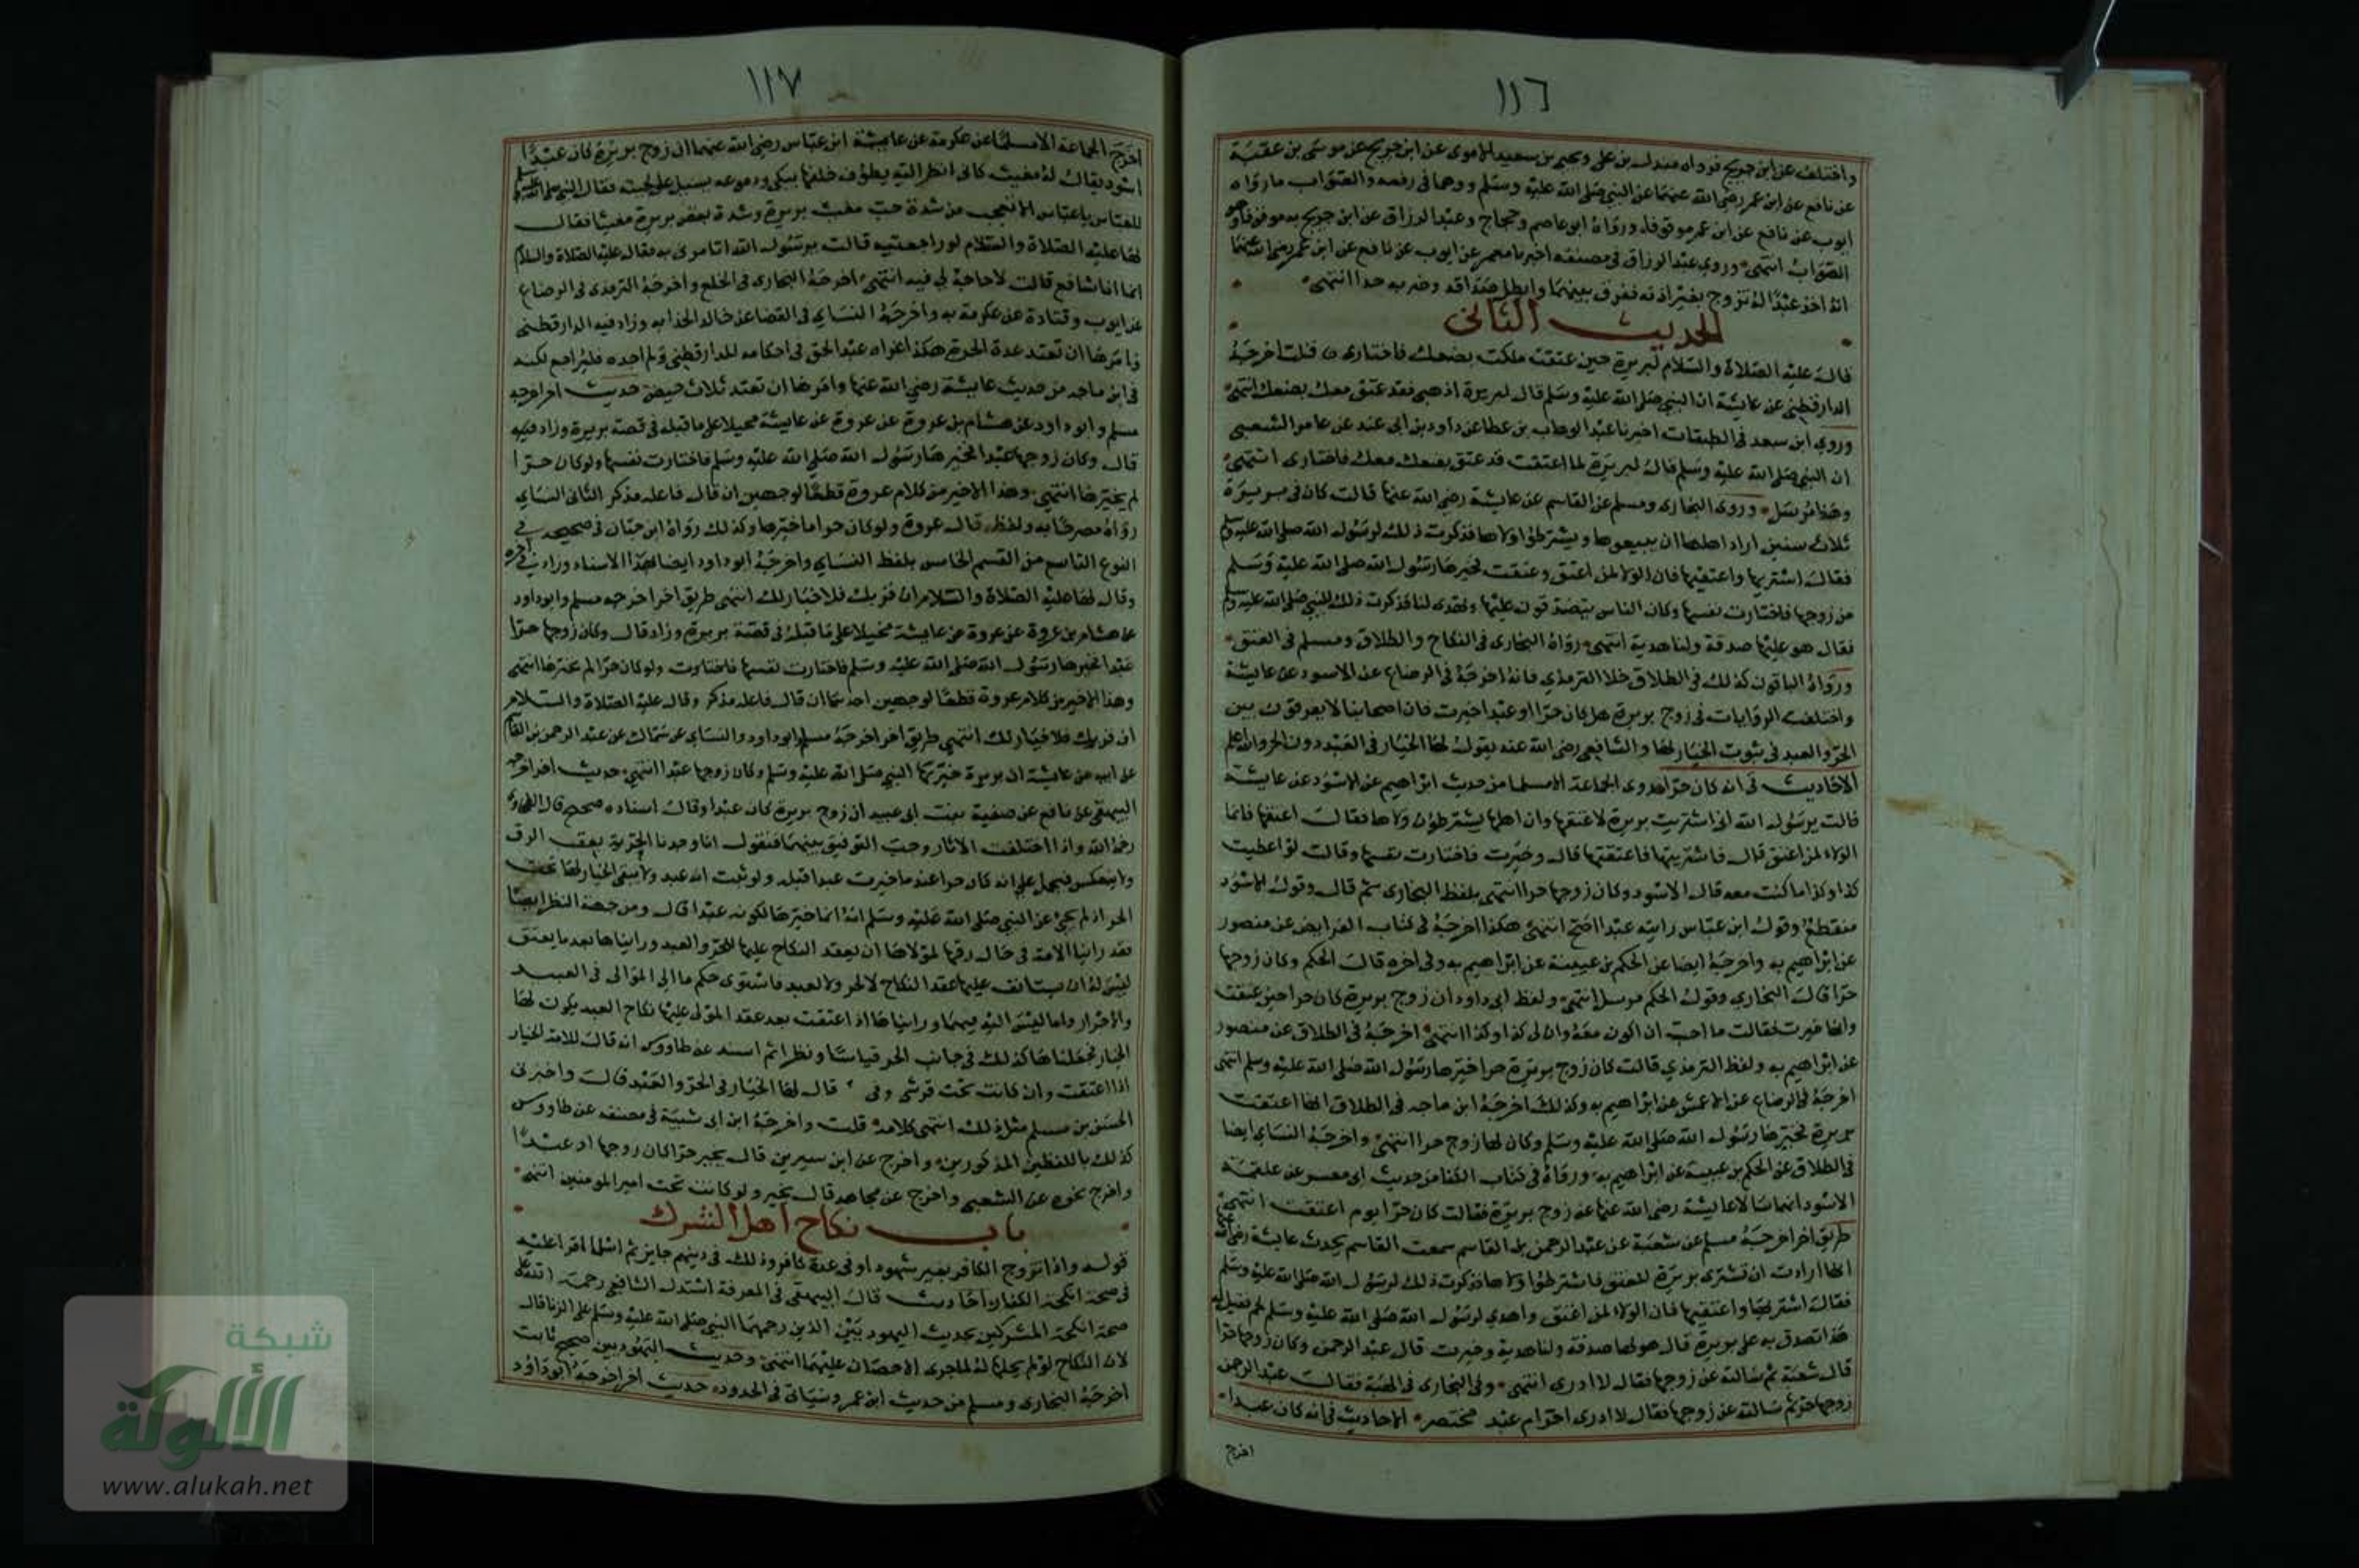 ١١٦
واختلف عن ابن جريج فرواه مندل بن علي ويحيى بن سعيد الاموي عن ابن جريج عن موسى بن عقبة
عن نافع عن ابن عمر رضي الله عنهما عن النبي صلى الله عليه وسلم ووهما في رفعه والصواب ما رواه
ايوب عن نافع عن ابن عمر موقوفا ورواه ابو عاصم وحجاج وعبد الرزاق عن ابن جريج به موقوفا وهو
الصواب انتهى وروى عبد الرزاق في مصنفه اخبرنا معمر عن ايوب عن نافع عن ابن عمر رضي الله عنهما
انه اخذ عبدا له تزوج بغير اذنه ففرق بينهما وابطل صداقه وضربه حدا انتهى
الحديث الثاني
قال عليه الصلاة والسلام لبريرة حين عتقت ملكت بضعك فاختاري قلت اخرجه
الدارقطني عن عايشة ان النبي صلى الله عليه وسلم قال لبريرة اذهبي فقد عتق معك بضعك انتهى
وروى ابن سعد في الطبقات اخبرنا عبد الوهاب بن عطا عن داود بن ابي هند عن عامر الشعبي
ان النبي صلى الله عليه وسلم قال لبريرة لما اعتقت قد عتق بضعك معك فاختاري انتهى
وهذا مرسل وروى البخاري ومسلم عن القاسم عن عايشة رضي الله عنها قالت كان في بريرة
ثلاث سنين اراد اهلها ان يبيعوها ويشترطوا ولاها فذكرت ذلك لرسول الله صلى الله عليه وسلم
فقال اشتريها واعتقيها فان الولا لمن اعتق وعتقت فخيرها رسول الله صلى الله عليه وسلم
من زوجها فاختارت نفسها وكان الناس يتصدقون عليها وتهدي لنا فذكرت ذلك للنبي صلى الله عليه وسلم
فقال هو عليها صدقة ولنا هدية انتهى رواه البخاري في النكاح والطلاق ومسلم في العتق
ورواه الباقون كذلك في الطلاق خلا الترمذي فانه اخرجه في الرضاع عن الاسود عن عايشة
واختلفت الروايات في زوج بريرة هل كان حرا او عبدا خيرت فان اصحابنا لا يفرقون بين
الحر والعبد في ثبوت الخيار لها والشافعي رضي الله عنه يقول لها الخيار في العبد دون الحر والله اعلم
الاحاديث في انه كان حرا روى الجماعة الا مسلما من حديث ابراهيم عن الاسود عن عايشة
قالت يرسول الله اني اشتريت بريرة لاعتقها وان اهلها يشترطون ولاها فقال اعتقها فانما
الولاء لمن اعتق قال فاشتريتها فاعتقتها قال وخيرت فاختارت نفسها وقالت لو اعطيت
كذا وكذا ما كنت معه قال الاسود وكان زوجها حرا انتهى بلفظ البخاري ثم قال وقول الاسود
منقطع وقول ابن عباس رايته عبدا اصح انتهى هكذا اخرجه في كتاب الفرايض عن منصور
عن ابراهيم به واخرجه ايضا عن الحكم بن عيينة عن ابراهيم به وفي اخره قال الحكم وكان زوجها
حرا قال البخاري وقول الحكم مرسل انتهى ولفظ ابي داود ان زوج بريرة كان حرا حين عتقت
وانها خيرت فقالت ما احب ان اكون معه وان لي كذا وكذا انتهى اخرجه في الطلاق عن منصور
عن ابراهيم به ولفظ الترمذي قالت كان زوج بريرة حرا فخيرها رسول الله صلى الله عليه وسلم انتهى
اخرجه في الرضاع عن الاعمش عن ابراهيم به وكذلك اخرجه ابن ماجه في الطلاق انها اعتقت
بريرة فخيرها رسول الله صلى الله عليه وسلم وكان لها زوج حرا انتهى واخرجه النساي ايضا
في الطلاق عن الحكم بن عيينة عن ابراهيم به ورواه في كتاب الكنا من حديث ابي معسر عن علقمة
الاسود انهما سالا عايشة رضي الله عنها عن زوج بريرة فقالت كان حرا يوم اعتقت انتهى
طريق اخر اخرجه مسلم عن شعبة عن عبد الرحمن بن القاسم سمعت القاسم يحدث عن عايشة رضي الله عنها
انها ارادت ان تشتري بريرة للعتق فاشترطوا ولاها فذكرت ذلك لرسول الله صلى الله عليه وسلم
فقال اشتريها واعتقيها فان الولاء لمن اعتق واهدي لرسول الله صلى الله عليه وسلم لحم فقيل له
هذا تصدق به على بريرة قال هو لها صدقة ولنا هدية وخيرت قال عبد الرحمن وكان زوجها حرا
قال شعبة ثم سالته عن زوجها فقال لا ادري انتهى وفي البخاري في الهبة فقال عبد الرحمن
زوجها حر ثم سالته عن زوجها فقال لا ادري احر ام عبد مختصر الاحاديث في انه كان عبدا
اخرج
١١٧
اخرج الجماعة الا مسلما عن عكرمة عن عايشة ابن عباس رضي الله عنهما ان زوج بريرة كان عبدا
اسود يقال له مغيث كاني انظر اليه يطوف خلفها يبكي ودموعه تسيل على لحيته فقال النبي صلى الله عليه وسلم
للعباس يا عباس الا تعجب من شدة حب مغيث بريرة وشدة بغض بريرة مغيثا فقال
لها عليه الصلاة والسلام لو راجعتيه قالت يرسول الله اتامرني به فقال عليه الصلاة والسلام
انما انا شافع قالت لا حاجة لي فيه انتهى اخرجه البخاري في الخلع واخرجه الترمذي في الرضاع
عن ايوب وقتادة عن عكرمة به واخرجه النساي في القضا عن خالد الحذا به وزاد فيه الدارقطني
وامرها ان تعتد عدة الحرة هكذا عزاه عبد الحق في احكامه للدارقطني ولم اجده فليراجع لكنه
في ابن ماجه من حديث عايشة رضي الله عنها وامرها ان تعتد ثلاث حيض حديث اخر اخرجه
مسلم وابو داود عن هشام بن عروة عن عروة عن عايشة محيلا على ما قبله في قصة بريرة وزاد فيه
قال وكان زوجها عبدا فخيرها رسول الله صلى الله عليه وسلم فاختارت نفسها ولو كان حرا
لم يخيرها انتهى وهذا الاخير من كلام عروة قطعا لوجهين ان قال فاعله مذكر الثاني النساي
رواه مصرحا به ولفظه قال عروة ولو كان حرا ما خيرها وكذلك رواه ابن حبان في صحيحه في
النوع التاسع من القسم الخامس بلفظ النساي واخرجه ابو داود ايضا بهذا الاسناد وزاد في اخره
وقال لها عليه الصلاة والسلام ان قربك فلا خيار لك انتهى طريق اخر اخرجه مسلم وابو داود
عن هشام بن عروة عن عروة عن عايشة محيلا على ما قبله في قصة بريرة وزاد قال وكان زوجها حرا
عبدا فخيرها رسول الله صلى الله عليه وسلم فاختارت نفسها فاختارت ولو كان حرا لم يخيرها انتهى
وهذا الاخير من كلام عروة قطعا لوجهين احدهما ان قال فاعله مذكر وقال عليه الصلاة والسلام
ان قربك فلا خيار لك انتهى طريق اخر اخرجه مسلم وابو داود والنساي عن سماك عن عبد الرحمن بن القاسم
عن ابيه عن عايشة ان بريرة خيرها النبي صلى الله عليه وسلم وكان زوجها عبدا انتهى حديث اخر اخرجه
البيهقي عن نافع عن صفية بنت ابي عبيد ان زوج بريرة كان عبدا وقال اسناده صحيح قال الطحاوي
رحمه الله واذا اختلفت الاثار وجب التوفيق بينهما فنقول انا وجدنا الحرية تعقب الرق
ولا ينعكس فيحمل على انه كان حرا عندما خيرت عبدا قبله ولو ثبت انه عبد ولا ينفي الخيار لها تحت
الحر اذ لم يجئ عن النبي صلى الله عليه وسلم انه انما خيرها لكونه عبدا قال ومن جهة النظر ايضا
فقد راينا الامة في حال رقها لمولاها ان يعقد النكاح عليها للحر والعبد ورايناها بعد ما يعتق
ليس له ان يستانف عليها عقد النكاح لا لحر ولا لعبد فاستوى حكم ما الى الموالي في العبيد
والاحرار وما ليس اليه فيهما ورايناها اذا اعتقت بعد عقد المولى عليها نكاح العبد يكون لها
الخيار فجعلناها كذلك في جانب الحر قياسا ونظرا ثم اسند عن طاووس انه قال للامة الخيار
اذا اعتقت وان كانت تحت قرشي وفي قال لها الخيار في الحر والعبد قال واخبرني
الحسن بن مسلم مثل ذلك انتهى كلامه قلت واخرجه ابن ابي شيبة في مصنفه عن طاووس
كذلك باللفظين المذكورين واخرج عن ابن سيرين قال يخير حرا كان زوجها او عبدا
واخرج نحوه عن الشعبي واخرج عن مجاهد قال يخير ولو كانت تحت امير المومنين انتهى
باب نكاح اهل الشرك
قوله واذا تزوج الكافر بغير شهود او في عدة كافر وذلك في دينهم جايز ثم اسلما اقرا عليه
في صحة انكحة الكفار احاديث قال البيهقي في المعرفة استدل الشافعي رحمة الله عليه
صحة انكحة المشركين بحديث اليهوديين الذين رجمهما النبي صلى الله عليه وسلم على الزنا قال
لان النكاح لو لم يحلها له لما جرى الاحصان عليهما انتهى وحديث اليهوديين صحيح ثابت
اخرجه البخاري ومسلم من حديث ابن عمر وسياتي في الحدود حديث اخر اخرجه ابو داود
شبكة
الألوكة
www.alukah.net